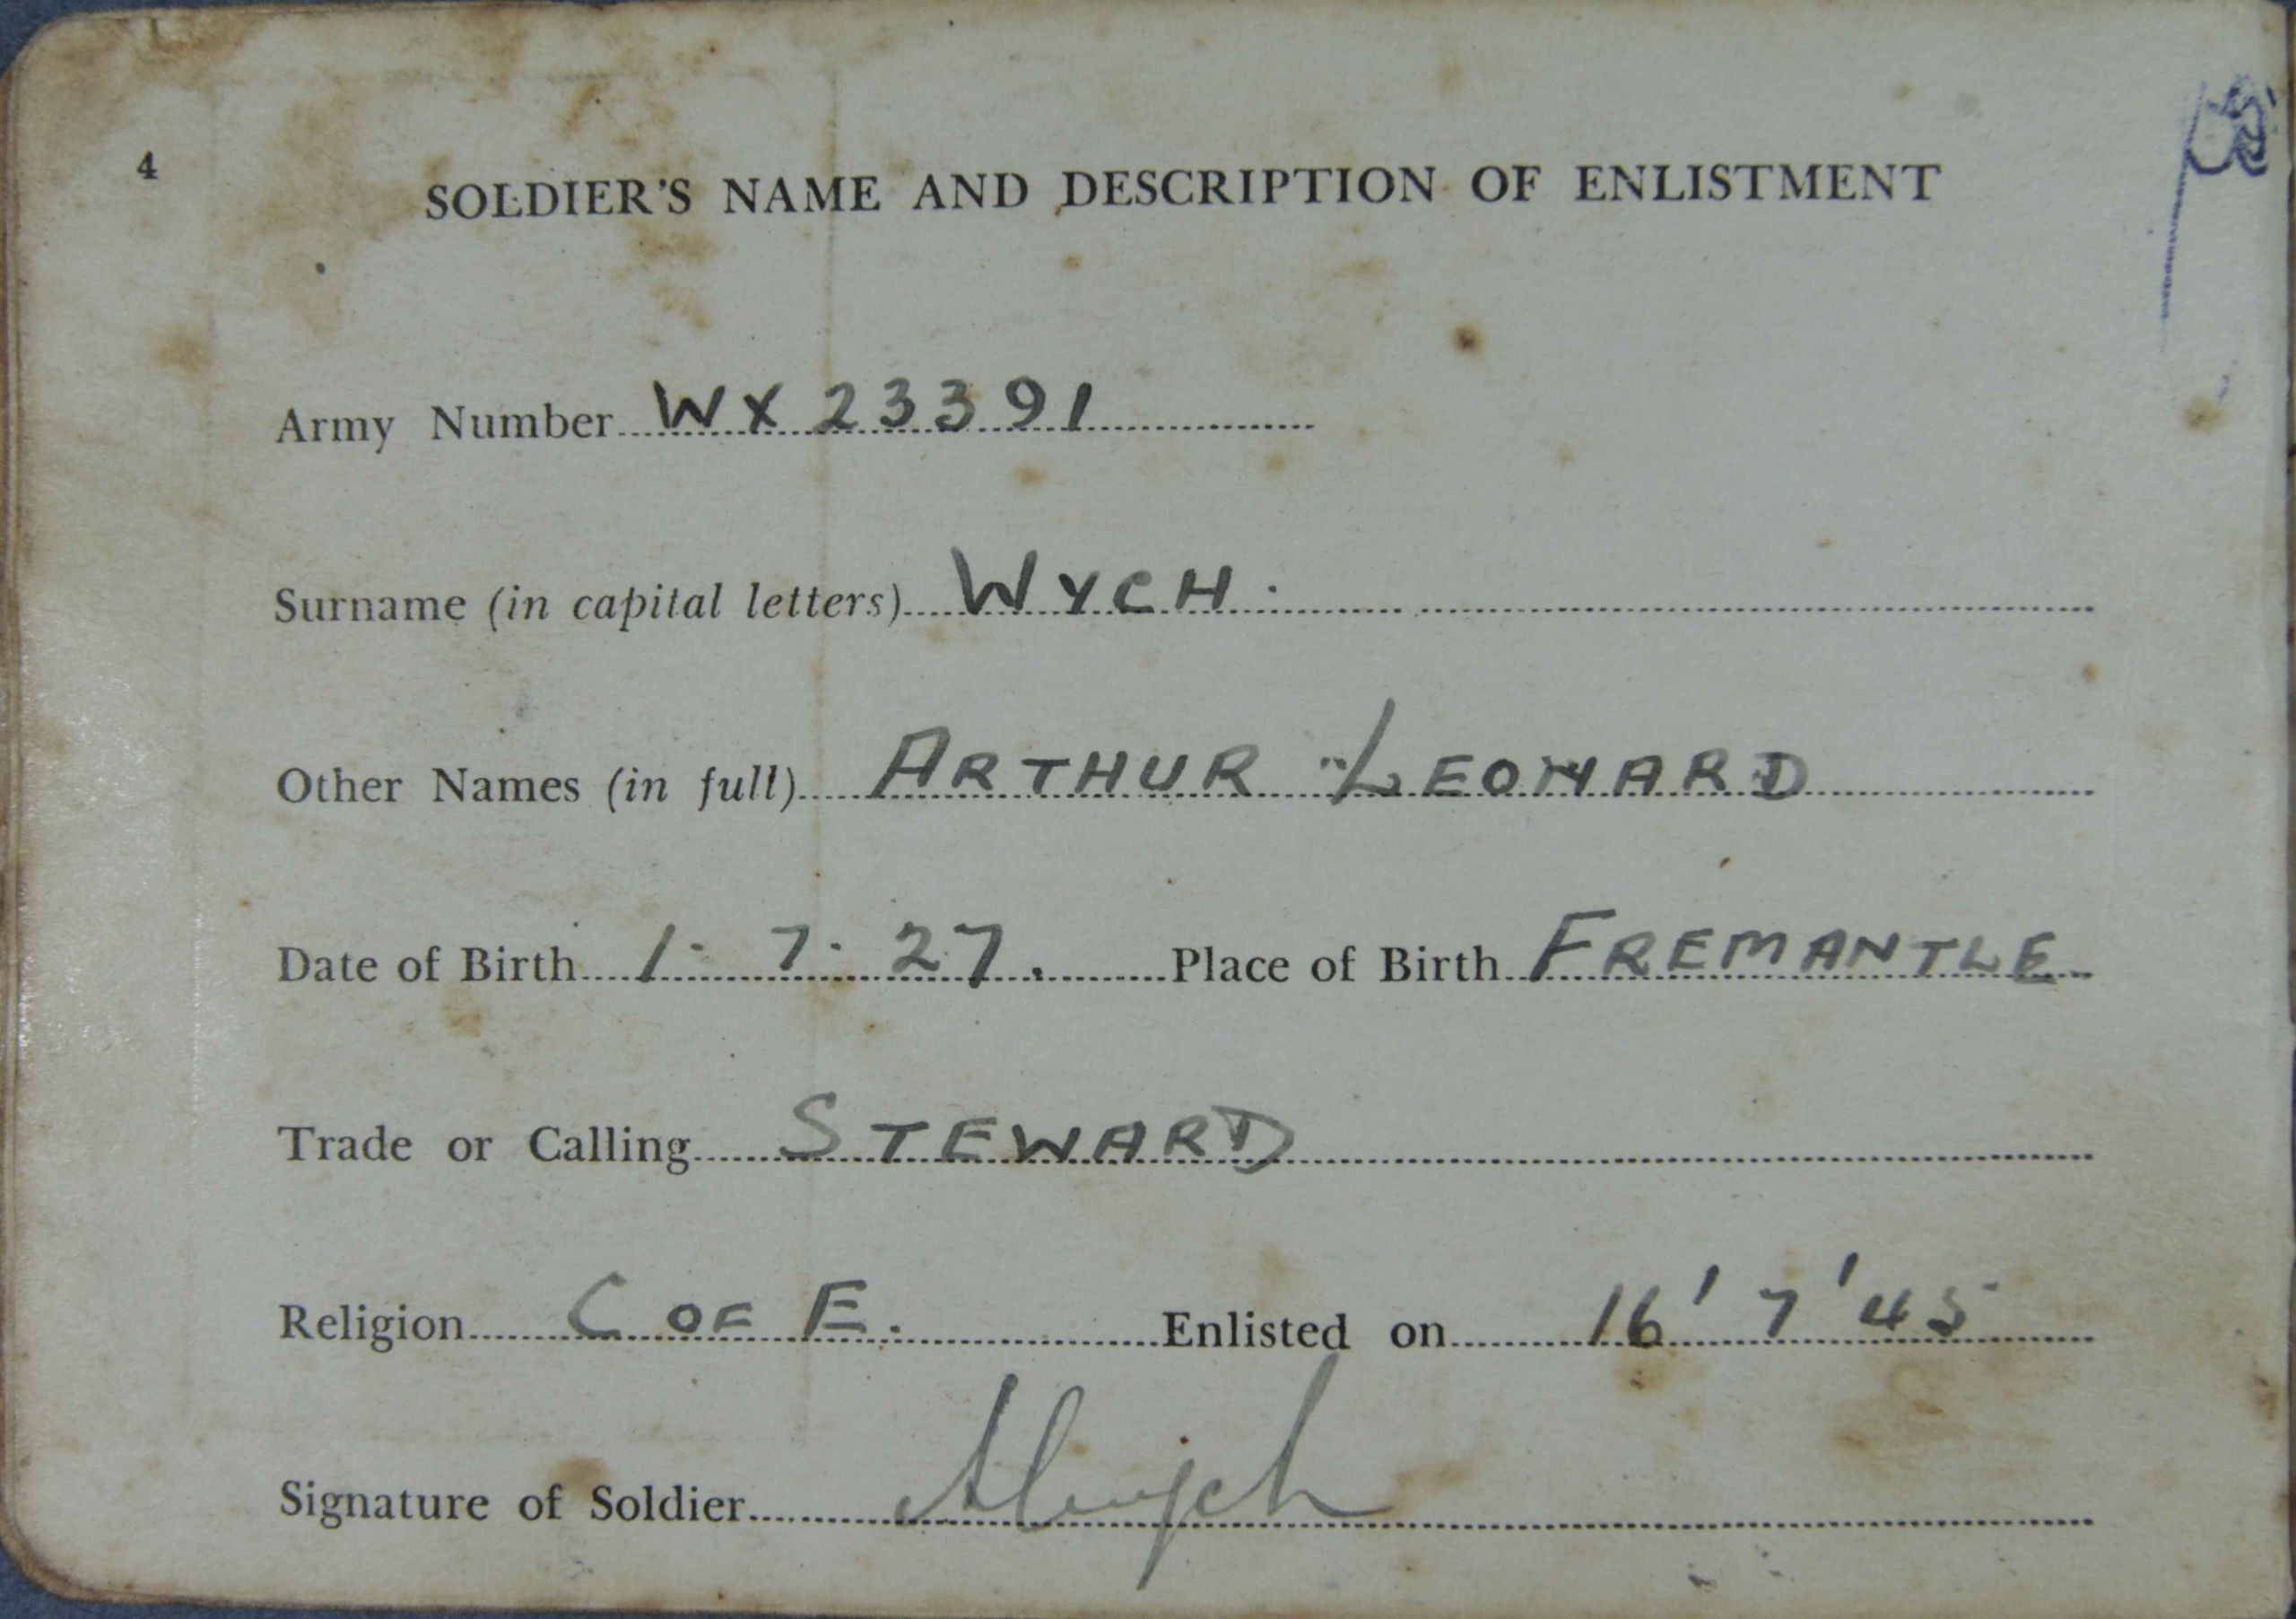 4
SOLDIER'S NAME AND DESCRIPTION OF ENLISTMENT
Army Number WX 23391
Surname (in capital letters) WYCH.
Other Names (in full) ARTHUR LEONARD
Date of Birth 1. 7. 27. Place of Birth FREMANTLE
Trade or Calling STEWARD
Religion C OF E. Enlisted on 16' 7' 45
Signature of Soldier ALWych